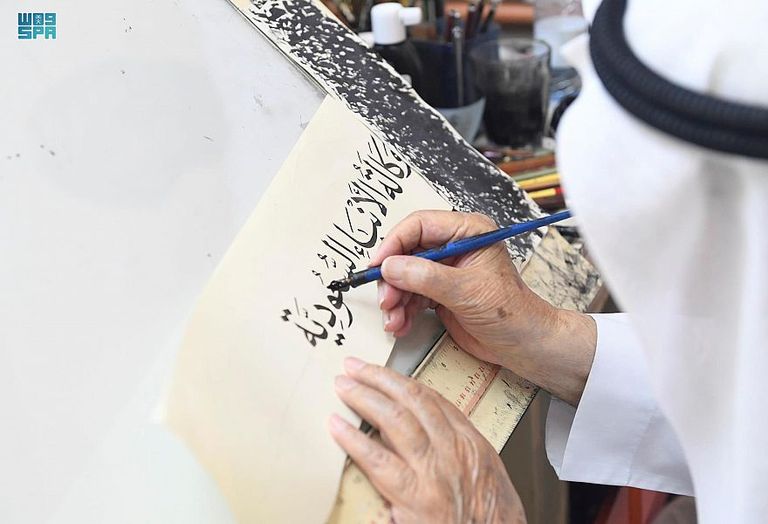 واس
SPA
وكالة الأنباء السعودية